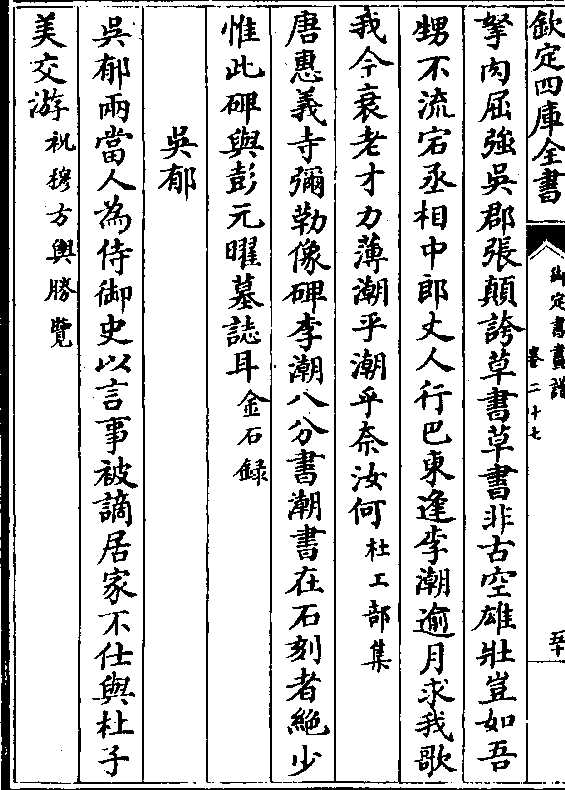 欽定四庫全書
御定書畫譜
卷二十七
五十
拏肉屈強吳郡張顛誇草書草書非古空雄壯豈如吾
甥不流宕丞相中郎丈人行巴東逢李潮逾月求我歌
我今衰老才力薄潮乎潮乎奈汝何杜工部集
唐惠義寺彌勒像碑李潮八分書潮書在石刻者絶少
惟此碑與彭元曜墓誌耳金石録
吳郁
吳郁兩當人為侍御史以言事被謫居家不仕與杜子
美交游祝穆方輿勝覽